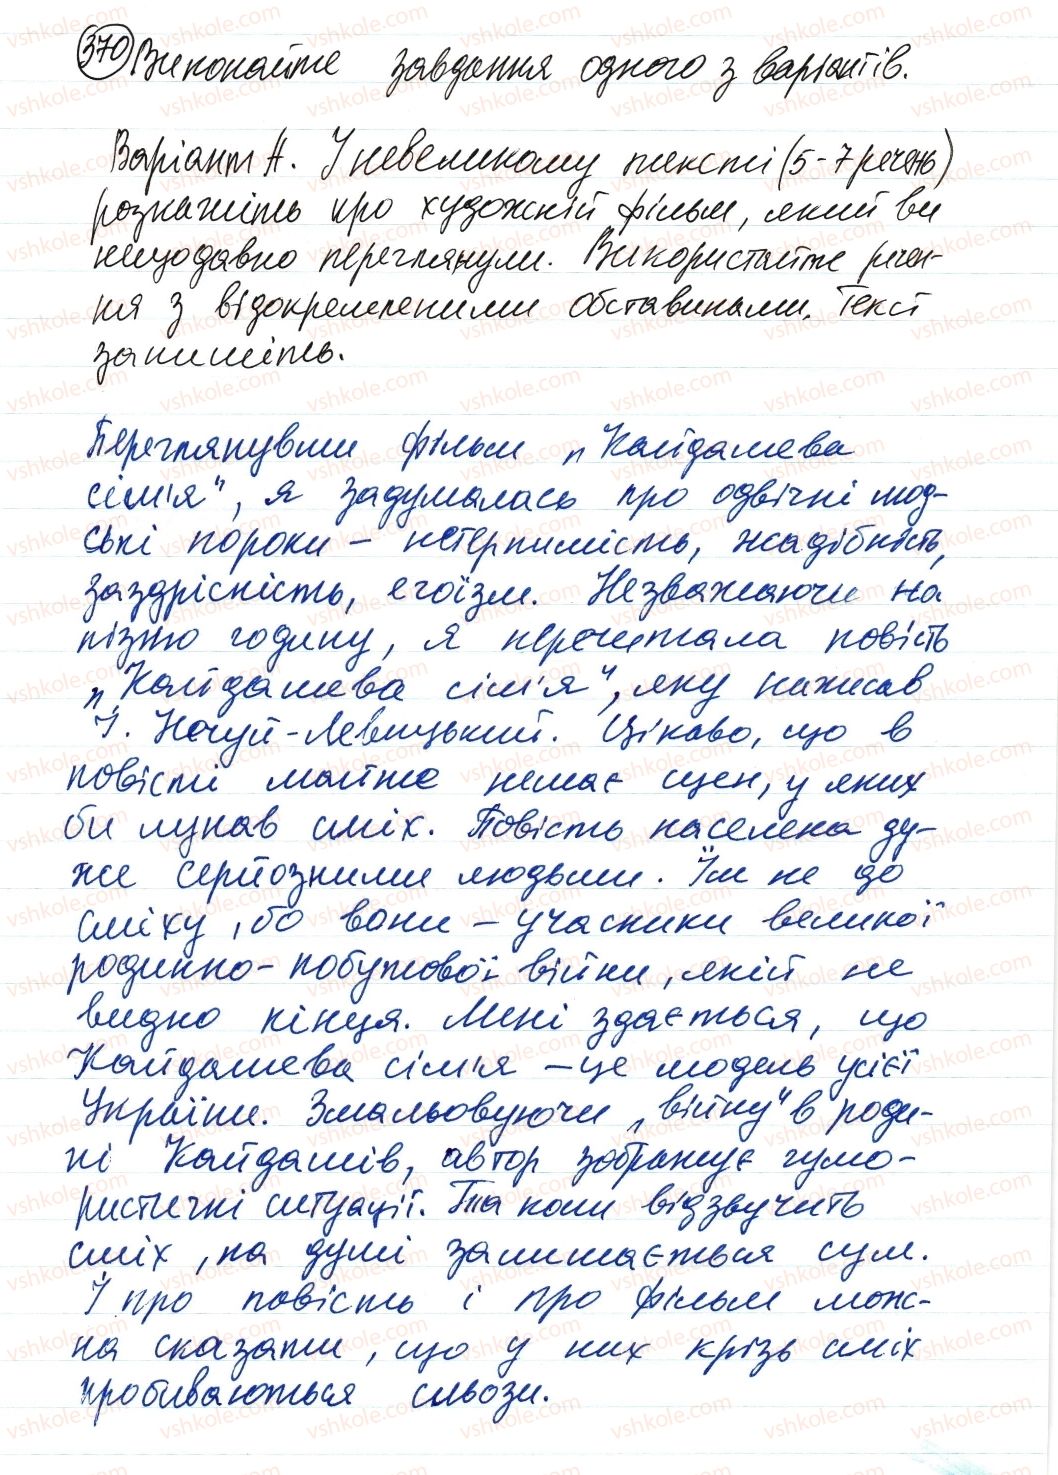 370 Виконайте завдання одного з варіантів.
Варіант А. У невеликому тексті (5-7 речень)
розкажіть про художній фільм, який ви
нещодавно переглянули. Використайте речен-
ня з відокремленими обставинами. Текст
запишіть.
Переглянувши фільм „Кайдашева
сім'я", я задумалась про одвічні люд-
ські пороки – нетерпимість, жадібність,
заздрісність, егоїзм. Незважаючи на
пізню годину, я перечитала повість
„Кайдашева сім'я", яку написав
І. Нечуй-Левицький. Цікаво, що в
повісті майже немає сцен, у яких
би лунав сміх. Повість населена ду-
же серйозними людьми. Їм не до
сміху, бо вони – учасники великої
родинно-побутової війни, якій не
видно кінця. Мені здається, що
Кайдашева сім'я – це модель усієї
України. Змальовуючи „війну" в роди-
ні Кайдашів, автор зображує гумо-
ристичні ситуації. Та коли відзвучить
сміх, на душі залишається сум.
І про повість і про фільм мож-
на сказати, що у них крізь сміх
пробиваються сльози.